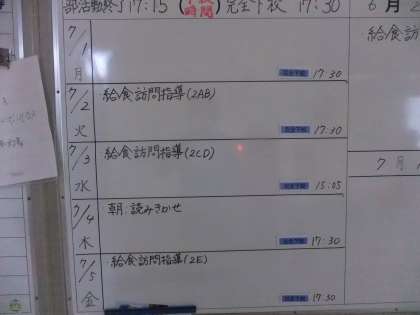 部活動終了17:15 (下校時間) 完全下校 17:30
6月2
給食訪
7/1
月
完全下校 17:30
7/2 給食訪問指導(2AB)
火
完全下校 17:30
7/3 給食訪問指導(2CD)
水
完全下校 15:05
7月
7/4 朝:読みきかせ
木
完全下校 17:30
7/5 給食訪問指導(2E)
金
完全下校 17:30